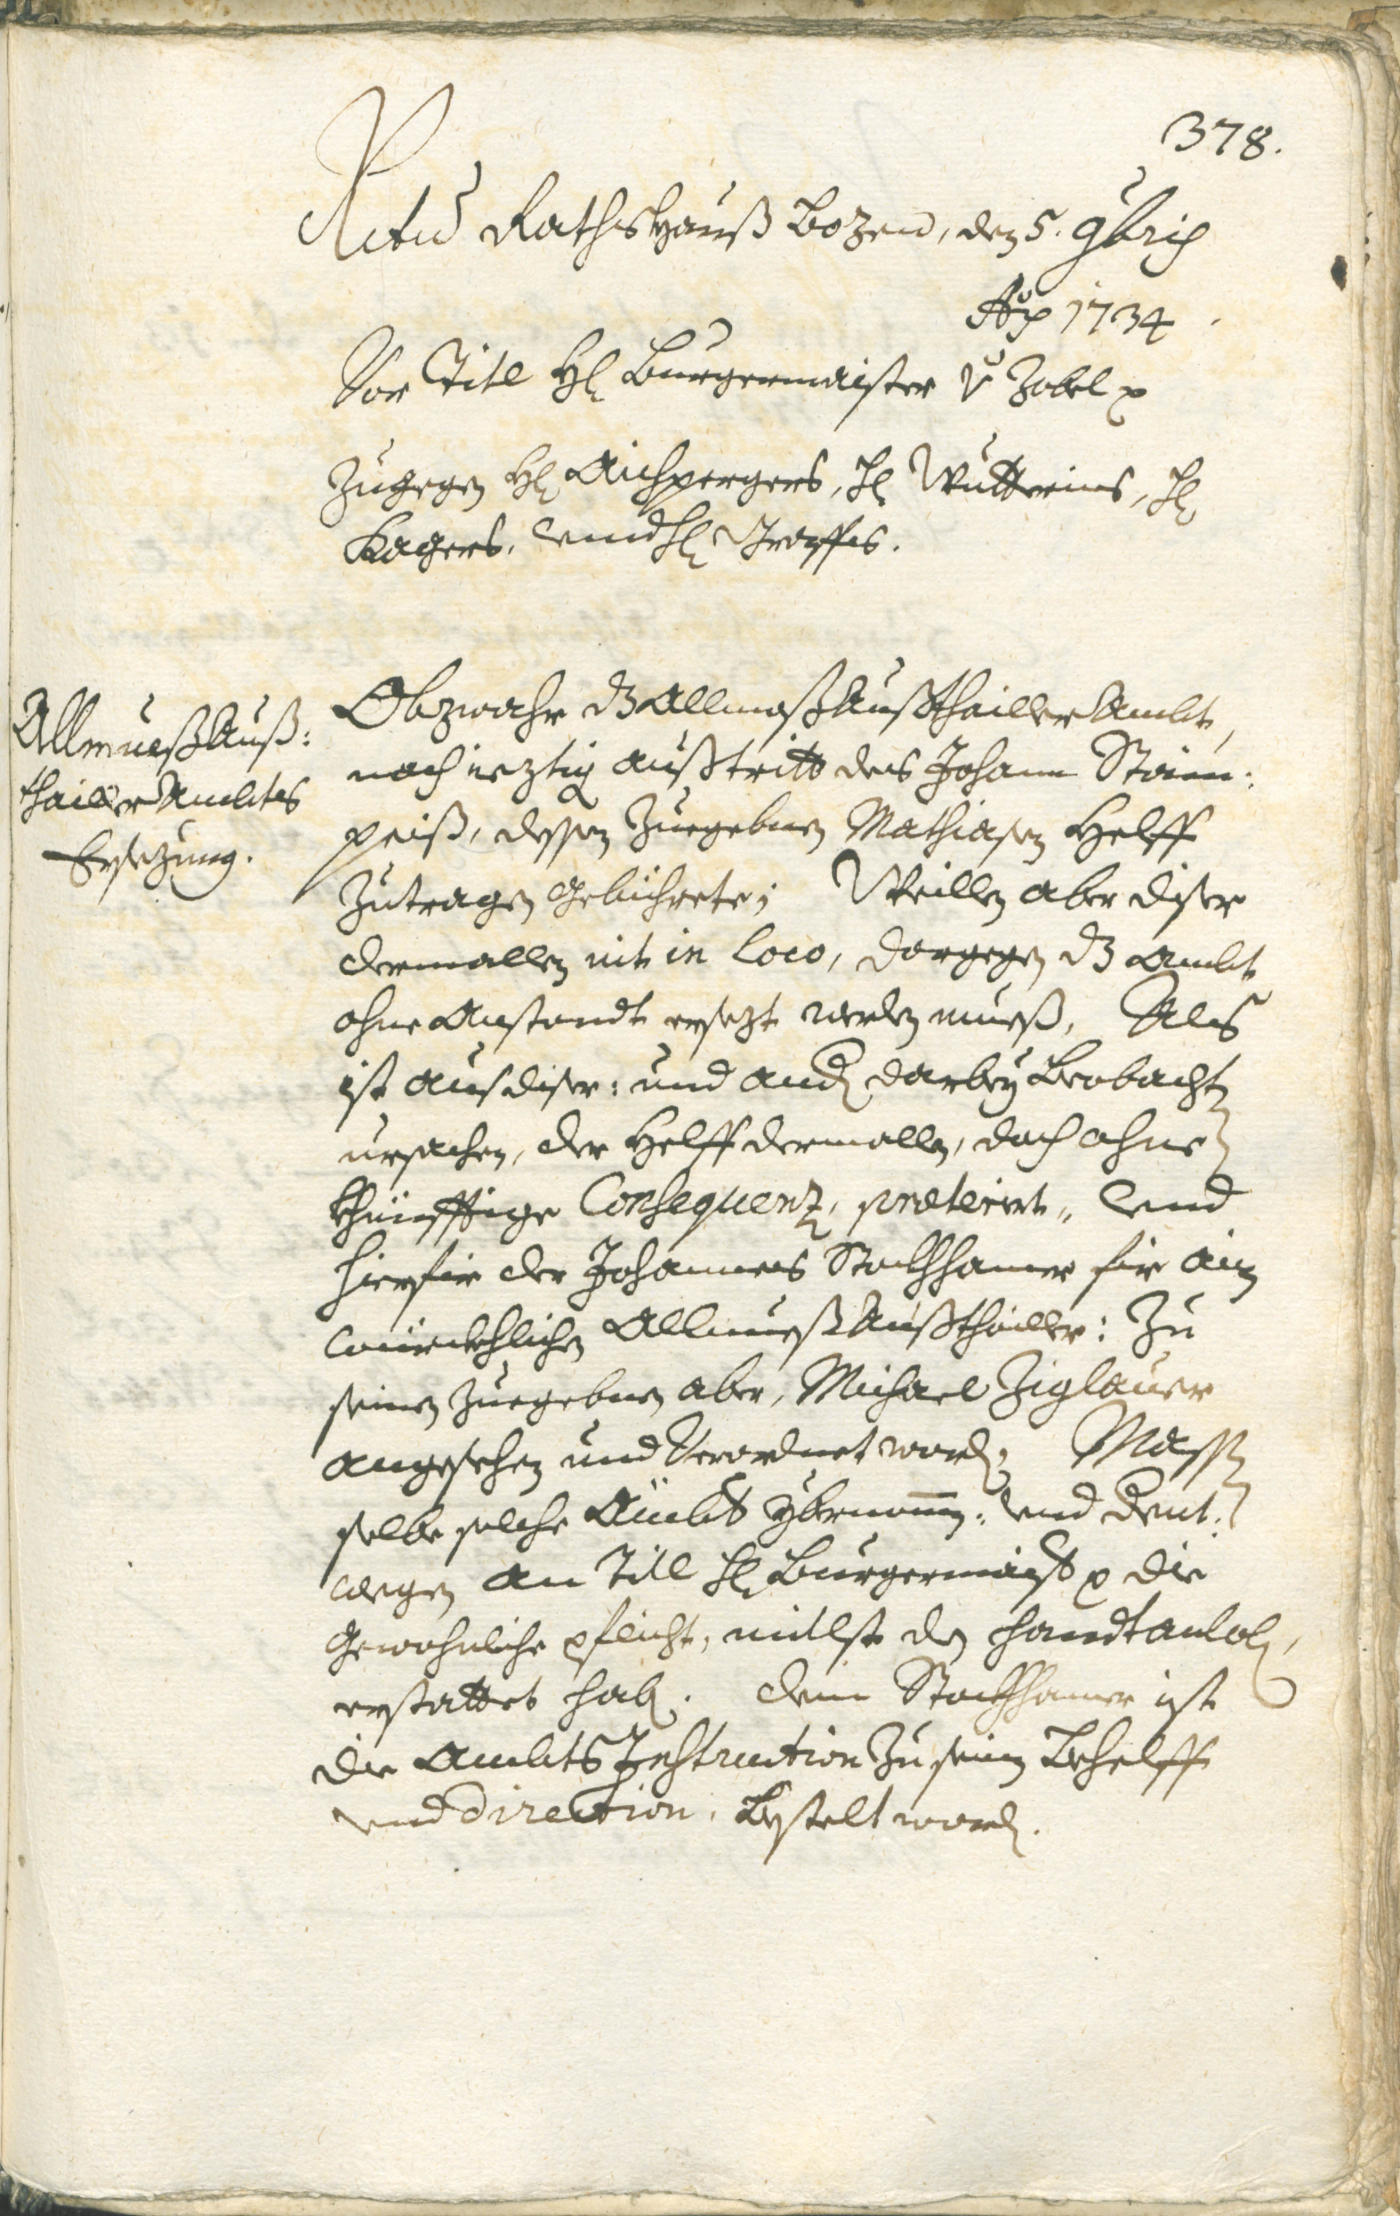 378.
Actu Rathshauß Bozen, den 5. 9bris
Ao 1734.
Vor Titl H: Burgermaister v Zobel p
Zugegen H: Aichpergers, H: Wutterins, H:
Kagers, vnd H: Graffes.
Allmueßauß:
thailler Ambts
Ersezung.
Obzwahr dz Allmoßaußthailler Ambt,
nach ieztig außtritt des Johann Stain:
peiß, dessen Zuegebnen Mathiasen Helff
Zutragen gebührete; Weillen aber diser
dermallen nit in loco, dargegen dz Ambt
ohne Anstandt ersezt werden mueß, Als
ist aus diser: und and: darbey beobacht:
ursachen, der Helff dermallen, doch ohne
khünfftige Consequenz, præteriert, vnd
hierfür der Johannes Stockhhamer für ain
würckhlichen Allmueßaußthailler: Zu
seinen Zuegebnen aber, Michael Ziglauer
angesehen und Verordnet word; Massen
selbe solche Ämbter ybernomen: vnd deut:
wegen an Titl H: Burgermaister p die
Gewohnliche pflicht, mitlst des handtanlob:
erstattet hab. Dem Stockhhamer ist
die Ambts Instruction Zu seinen Behelff
vnd Direction, bestelt word.